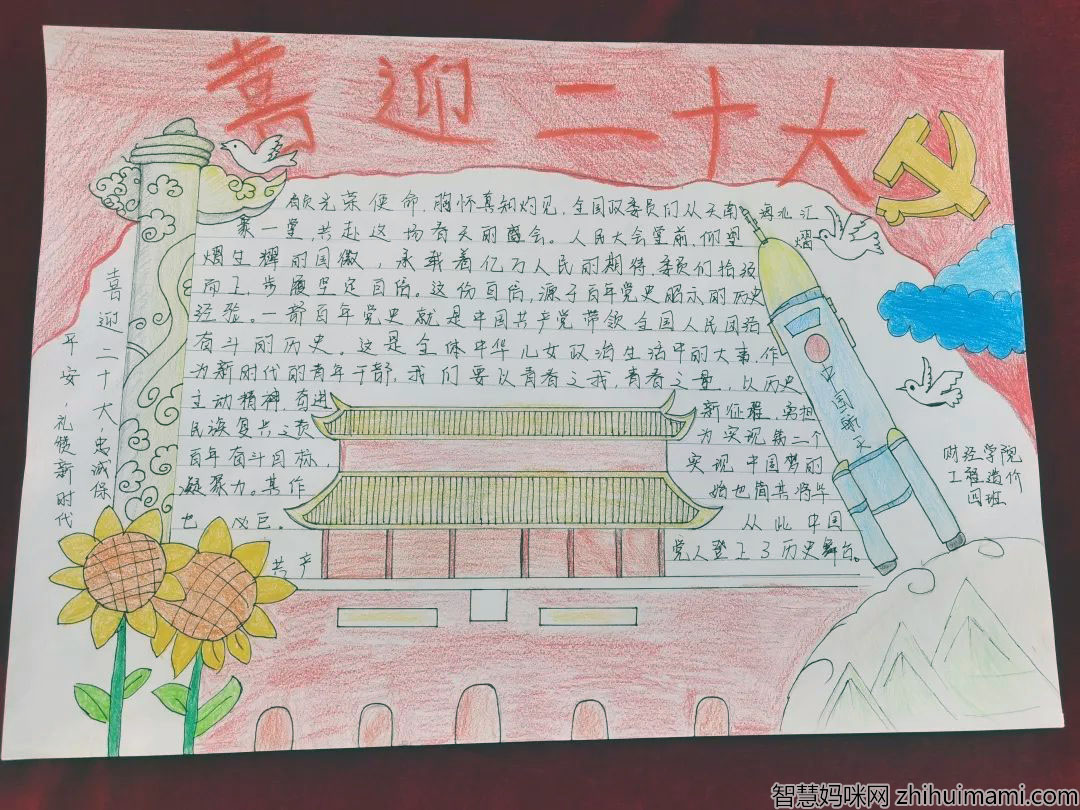 喜迎二十大
光荣使命,胸怀真知灼见,全国政委员们从天南海北汇
聚一堂,共赴这场春天的盛会。人民大会堂前,仰望熠
熠生辉的国徽,承载着亿万人民的期待,委员们拾级
而上,步履坚定自信。这份自信,源于百年党史昭示的历史
经验。一部百年党史就是中国共产党带领全国人民团结
奋斗的历史。这是全体中华儿女政治生活中的大事,作
为新时代的青年干部,我们要以青春之我,青春之
,以历史
主动精神,奋进
新征程,勇担
民族复兴之责
为实现第二个
百年奋斗目标,
实现中国梦的
凝聚力。其作
始也简其将毕
也必巨。
从此中国
共产
党人登上了历史舞台。
喜迎二十大,忠诚保
平安,礼赞新时代
中国航天
财经学院
工程造价
四班
智慧妈咪网 zhihuimami.com